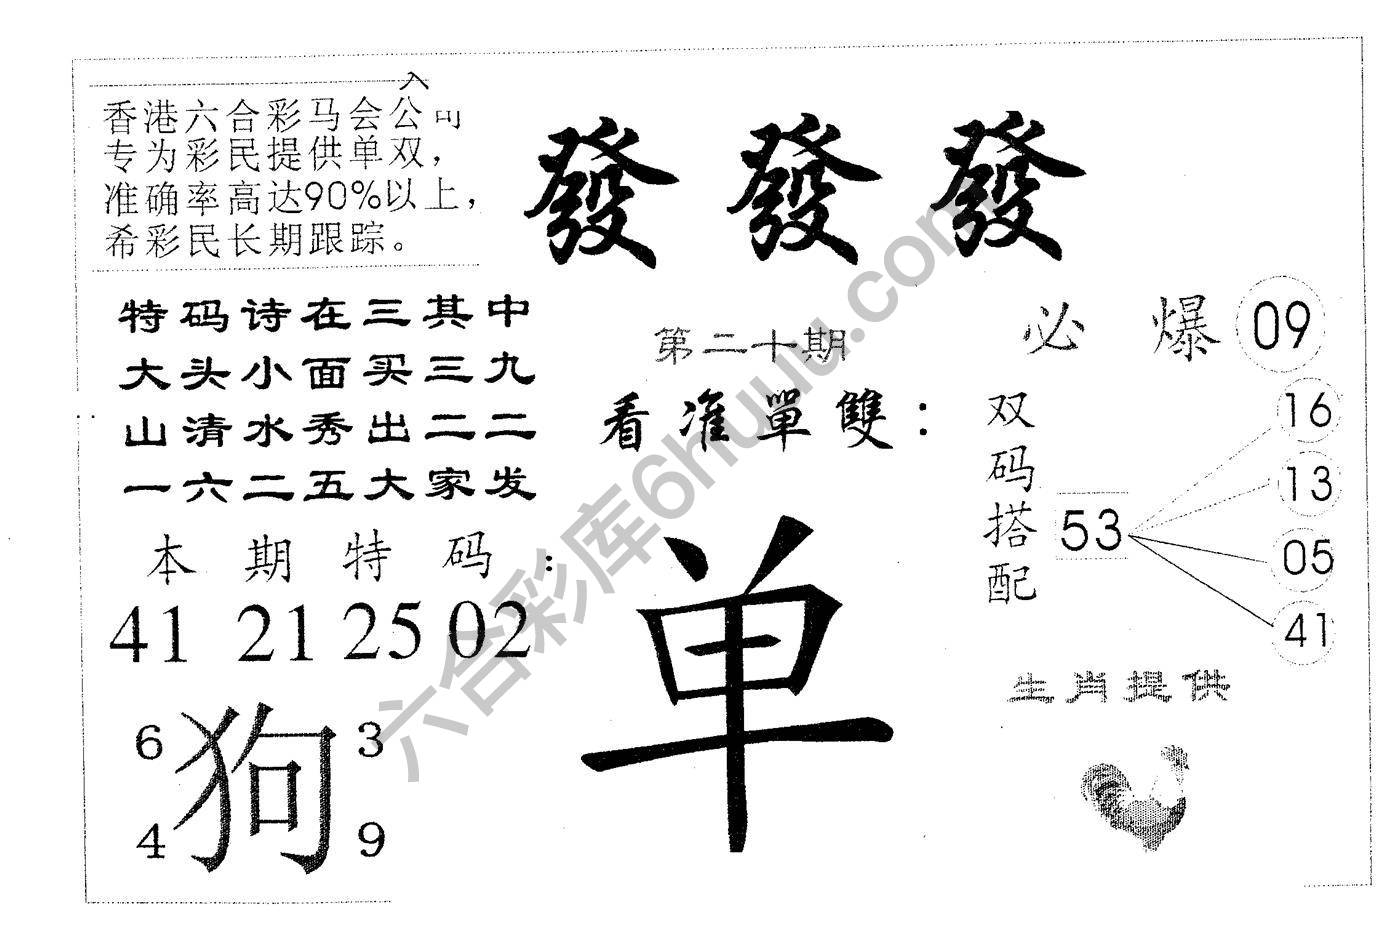 香港六合彩马会公司
专为彩民提供单双，
准确率高达90%以上，
希彩民长期跟踪。
發 發 發
特码诗在三其中
大头小面买三九
山清水秀出二二
一六二五大家发
第二十期
看准單雙：
单
本期特码：
41 21 25 02
6 狗 3
4 9
必爆 09
双码搭配
53
16
13
05
41
生肖提供
六合彩库6huuu.com